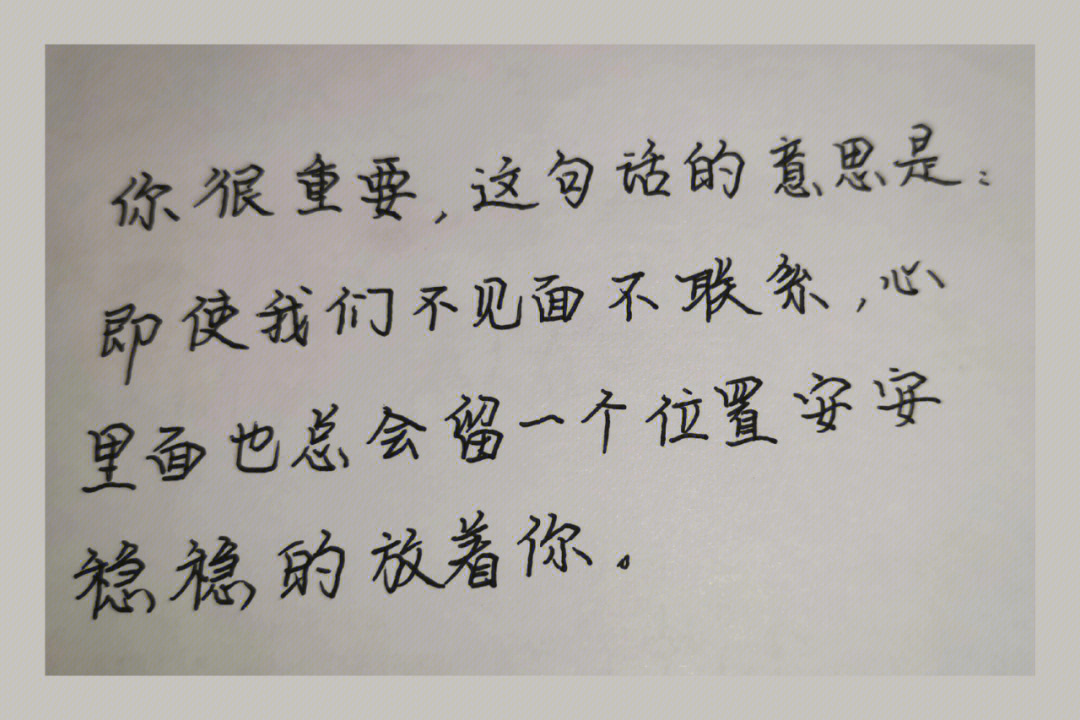 你很重要,这句话的意思是:
即使我们不见面不联系,心
里面也总会留一个位置安安
稳稳的放着你。